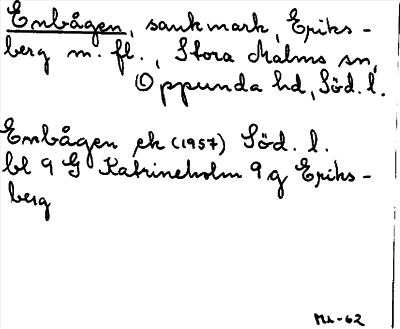 Enbågen, sankmark, Eriks-
berg m. fl., Stora Malms sn,
Oppunda hd, Söd. l.
Enbågen ek (1957) Söd. l.
bl 9 G Katrineholm 9 g Eriks-
berg